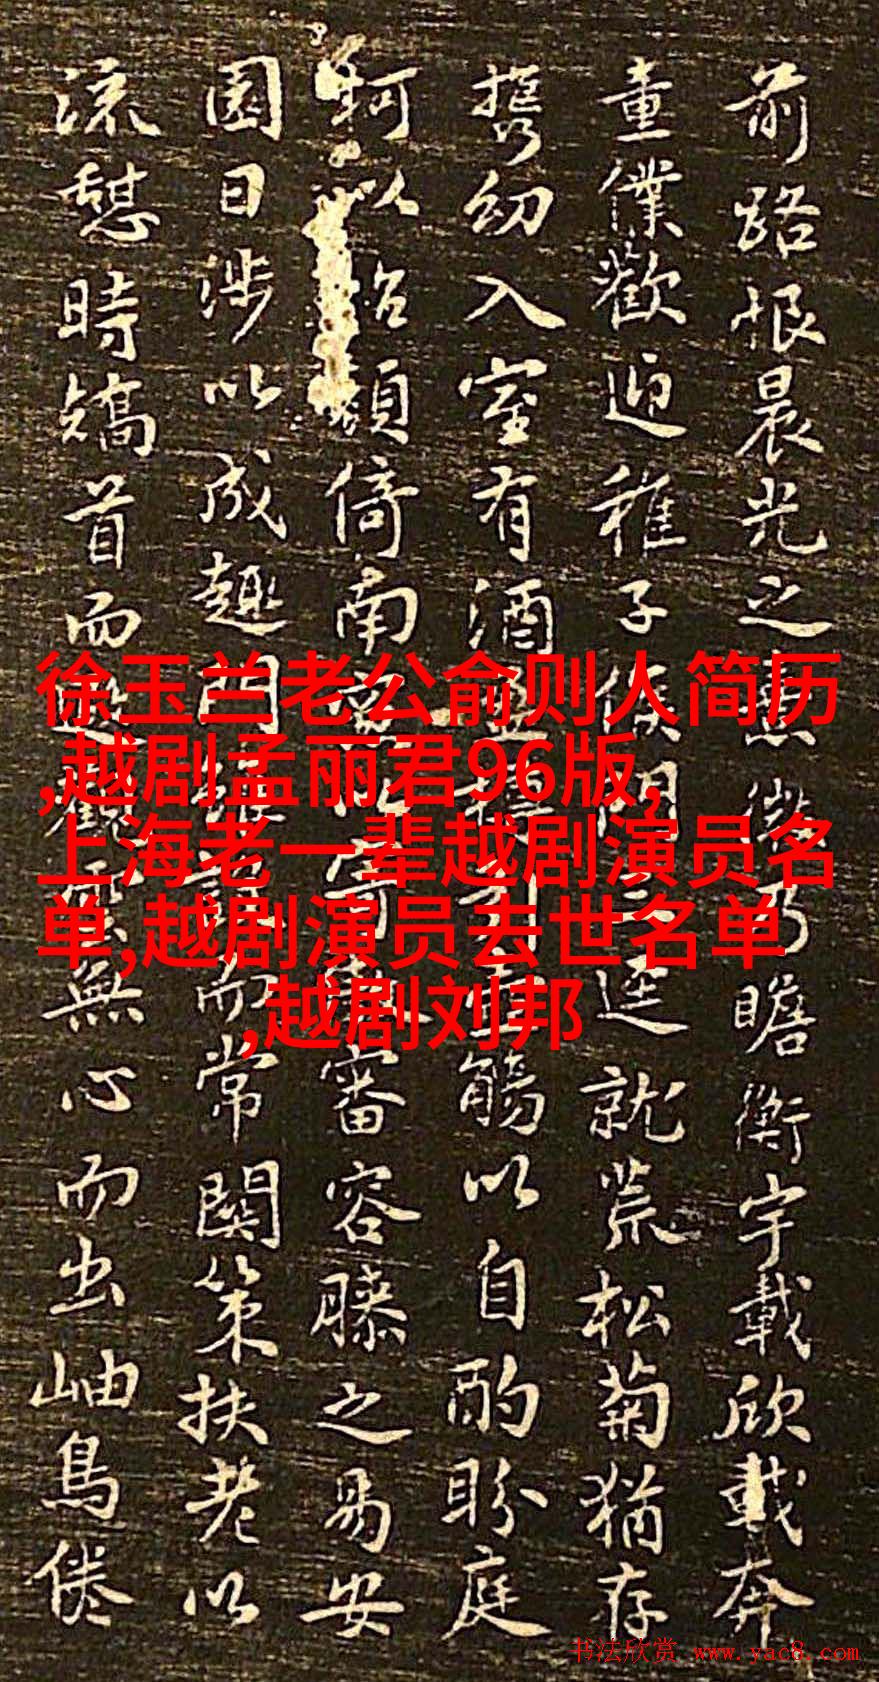 前路恨晨光之熹微乃瞻衡宇載欣載奔
童僕歡迎稚子候門三逕就荒松菊猶存
携幼入室有酒盈樽引壺觴以自酌盼庭
柯以怡顏倚南窗以寄傲審容膝之易安
園日涉以成趣門雖設而常關策扶老以
流憩時矯首而遐觀雲無心而出岫鳥倦
徐玉兰老公俞则人简历
,越剧孟丽君96版,
上海老一辈越剧演员名
单,越剧演员去世名单
,越剧刘邦
书法欣赏 www.yac8.com